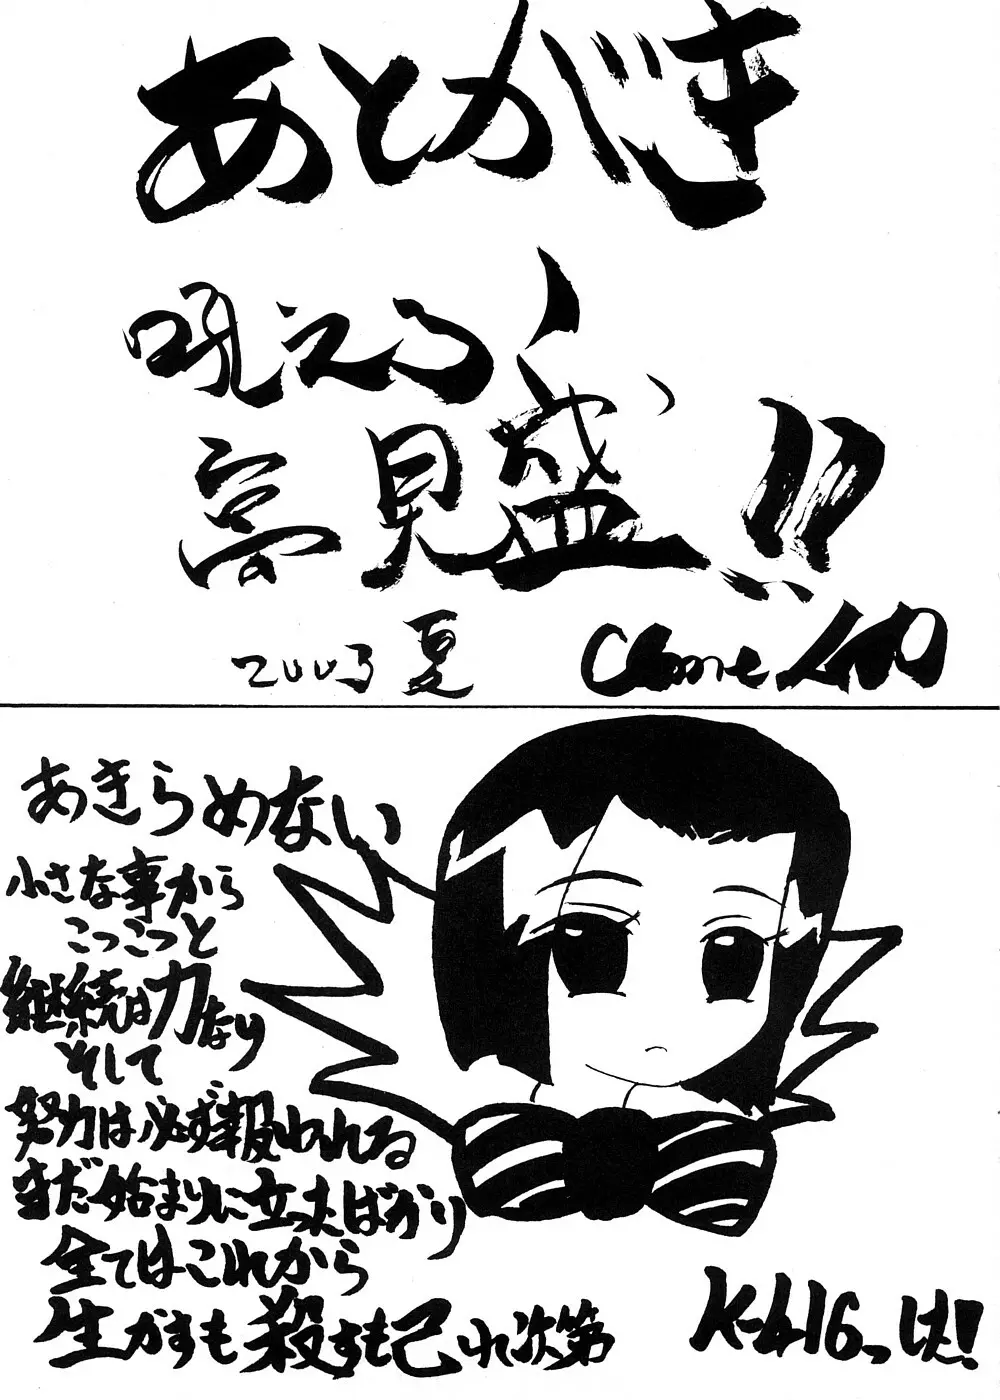 あとがき
吼える、
夢見盛!!
2003 夏
あきらめない
小さな事から
こつこつと
継続は力なり
そして
努力は必ず報われる
まだ始まりに立ったばかり
全てはこれから
生かすも殺すも己れ次第
K-416